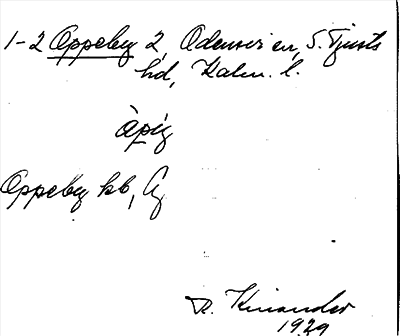 1-2 Oppeby 2, Odensvi sn, S. Tjusts
hd, Kalm. l.
àpiy
Oppeby kb, Ly
R. Kinander
1929